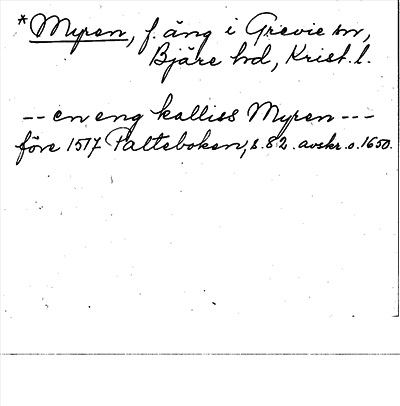 *Myren, f. äng i Grevie sn,
Bjäre hd, Krist. l.
-- en eng kalliss Myren ---
före 1517 Palteboken, s. 82. avskr. o. 1650.